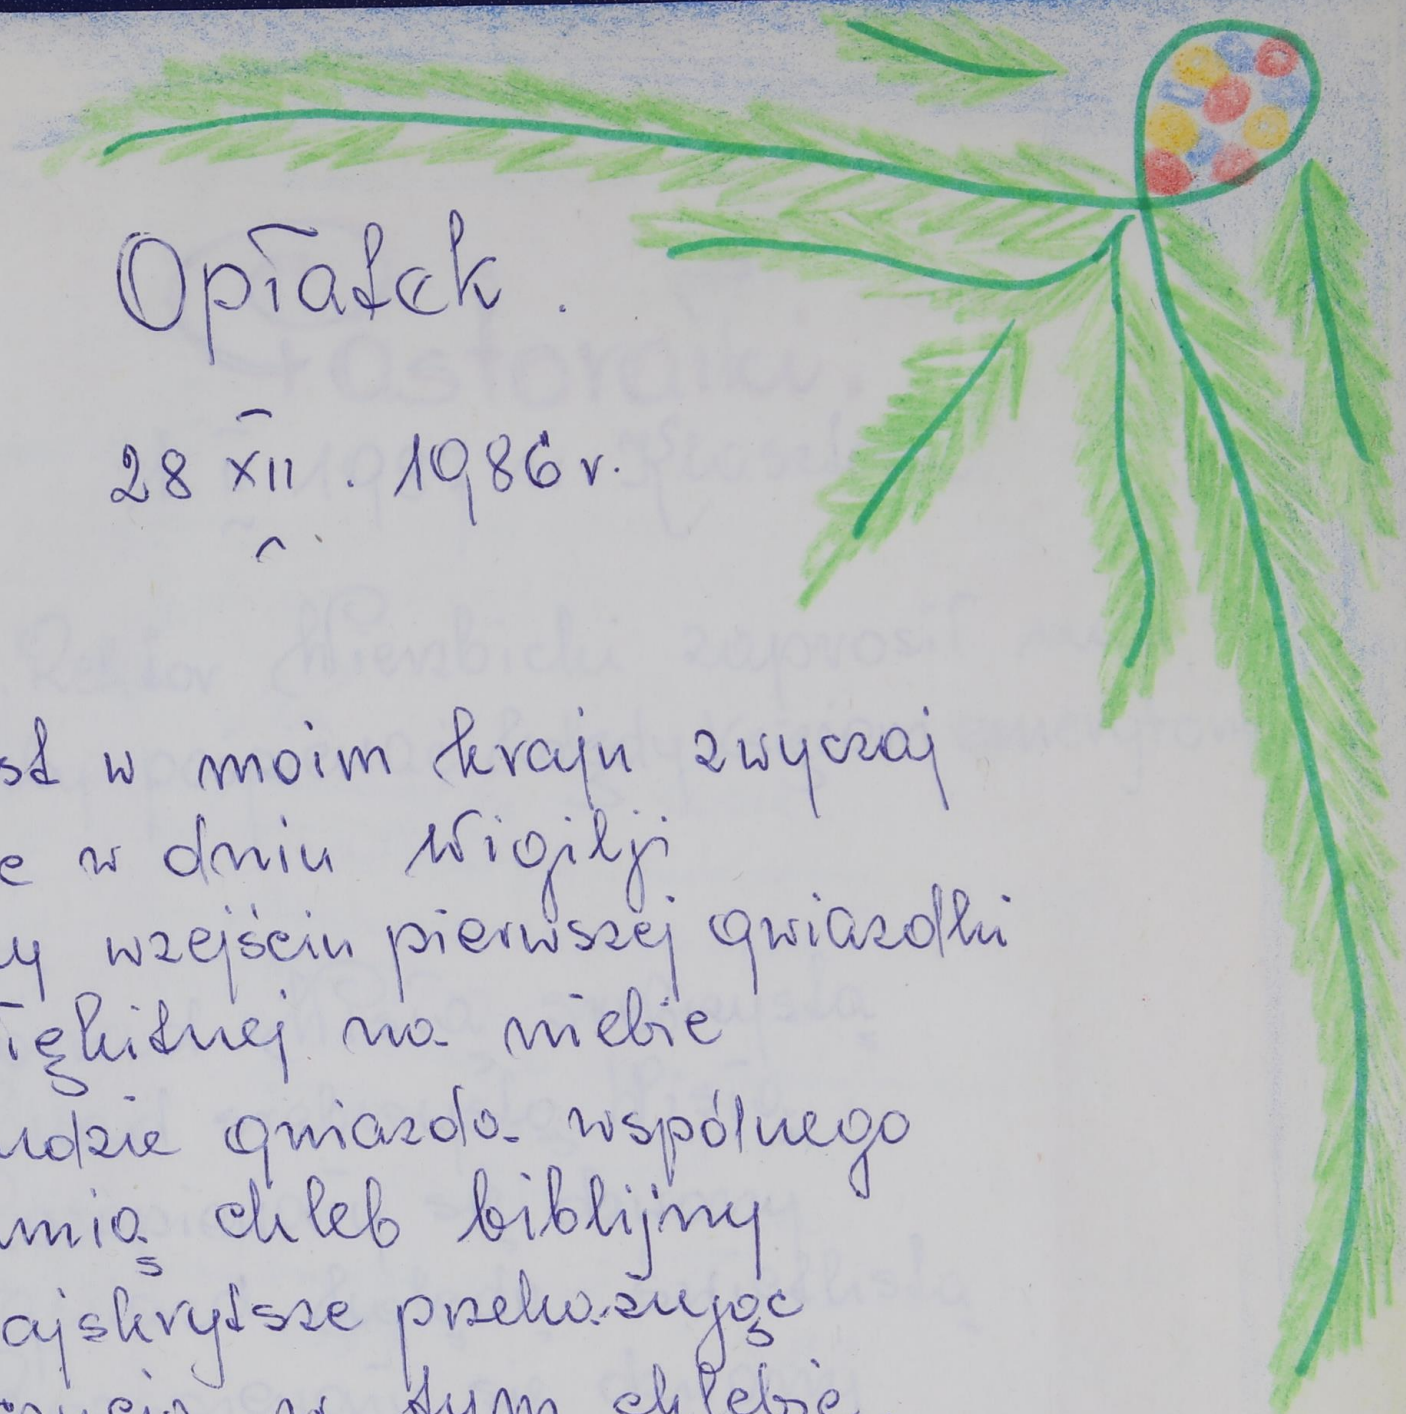 Opłatek.
28 XII. 1986 r.
st w moim kraju zwyczaj
e w dniu Wigilji
y wzejściu pierwszej gwiazdki
ękitnej na niebie
udzie gniazda wspólnego
mią chleb biblijny
ajskrytsze przekazując
w tym chlebie